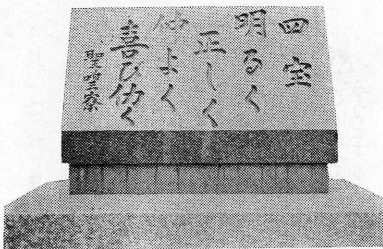 四宝
明るく
正しく
仲よく
喜び仂く